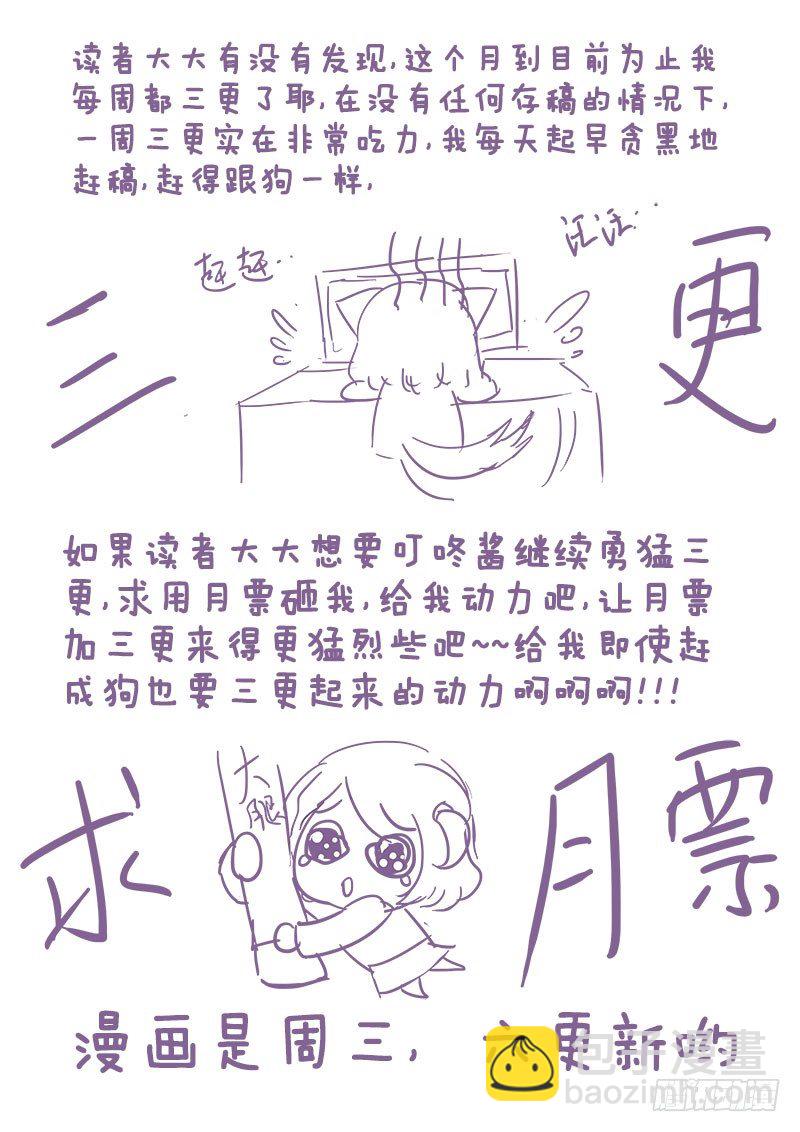 读者大大有没有发现,这个月到目前为止我
每周都三更了耶,在没有任何存稿的情况下,
一周三更实在非常吃力,我每天起早贪黑地
赶稿,赶得跟狗一样,
赶赶..
汪汪...
三更
如果读者大大想要叮咚酱继续勇猛三
更,求用月票砸我,给我动力吧,让月票
加三更来得更猛烈些吧~~给我即使赶
成狗也要三更起来的动力啊啊啊!!!
大腿
求月票
漫画是周三, 更新的
包子漫畫
baozimh.com